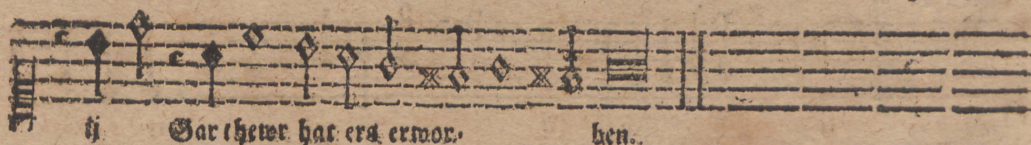 ij Gar thewr hat ers erwor- ben.